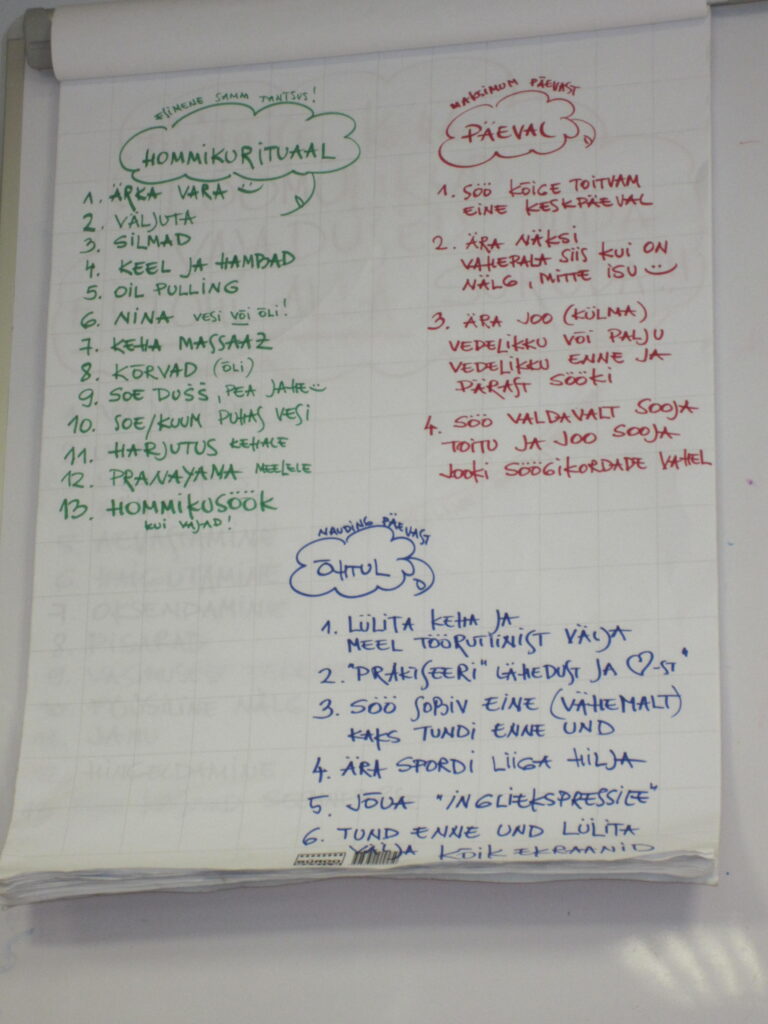 ESIMENE SAMM TANTSUS!
HOMMIKURITUAAL
1. ÄRKA VARA
2. VÄLJUTA
3. SILMAD
4. KEEL JA HAMBAD
5. OIL PULLING
6. NINA VESI VÕI ÕLI!
7. KEHA MASSAAZ
8. KÕRVAD (ÕLI)
9. SOE DUŠŠ, PEA JAHE
10. SOE/KUUM PUHAS VESI
11. HARJUTUS KEHALE
12. PRANAYAMA MEELELE
13. HOMMIKUSÖÖK
KUI VAJAD!
MAKSIMUM PÄEVAST
PÄEVAL
1. SÖÖ KÕIGE TOITVAM
EINE KESKPÄEVAL
2. ÄRA NÄKSI
VAHEPALA SIIS KUI ON
NÄLG, MITTE ISU
3. ÄRA JOO (KÜLMA)
VEDELIKKU VÕI PALJU
VEDELIKKU ENNE JA
PÄRAST SÖÖKI
4. SÖÖ VALDAVALT SOOJA
TOITU JA JOO SOOJA
JOOKI SÖÖGIKORDADE VAHEL
NAUDING PÄEVAST
ÕHTUL
1. LÜLITA KEHA JA
MEEL TÖÖRUTIINIST VÄLJA
2. "PRAKTSEERI" LÄHEDUST JA ♡-ST"
3. SÖÖ SOBIV EINE (VÄHEMALT)
KAKS TUNDI ENNE UND
4. ÄRA SPORDI LIIGA HILJA
5. JÕUA "INGLIEKSPRESSILE"
6. TUND ENNE UND LÜLITA
VÄLJA KÕIK EKRAANID